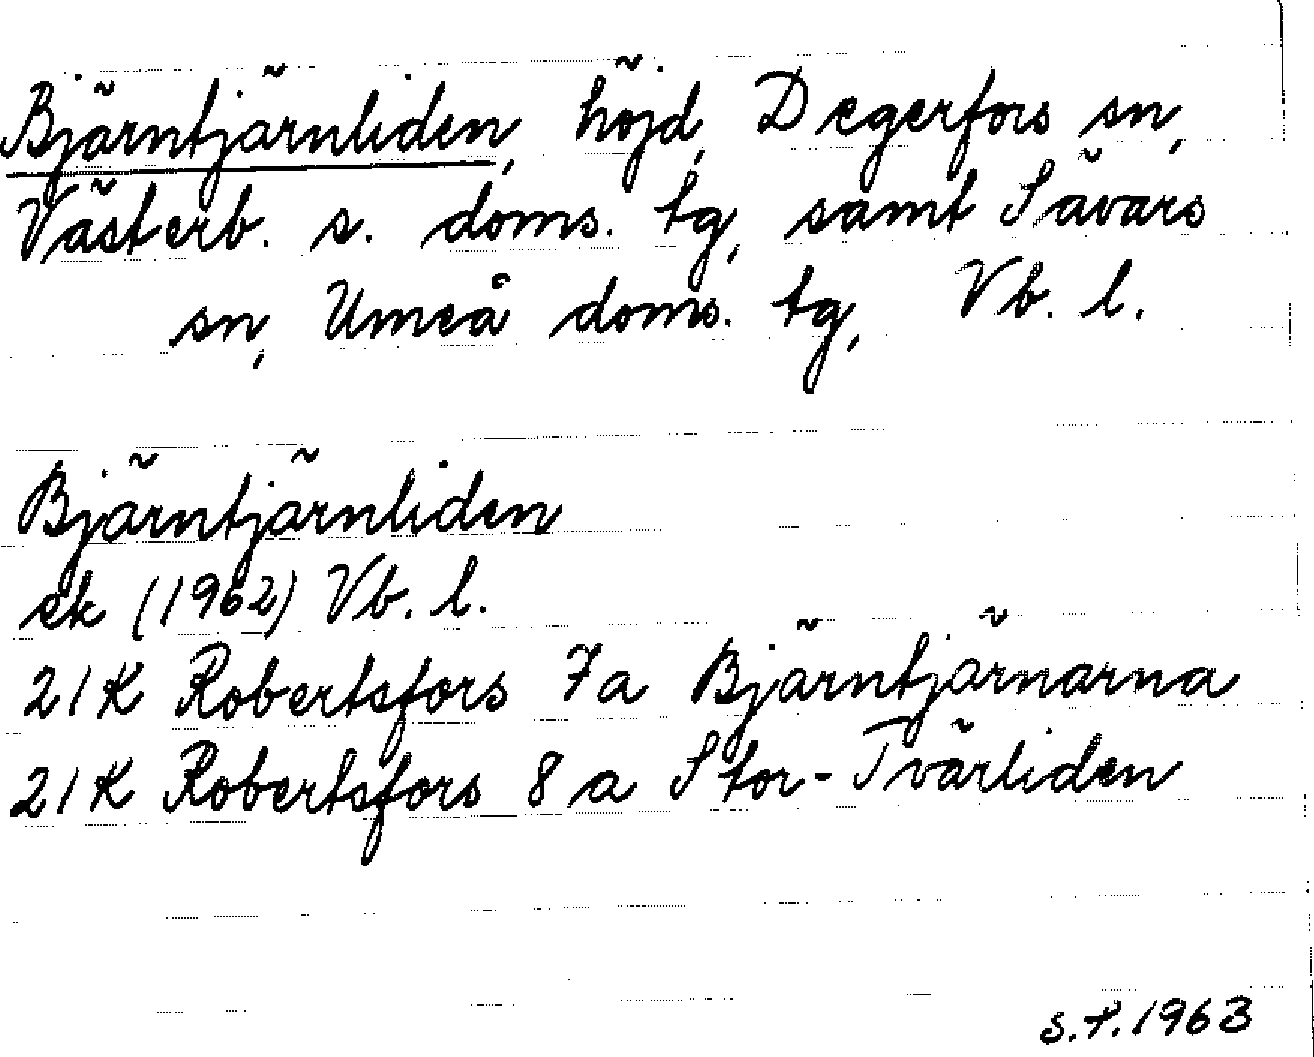 Bjärntjärnliden, höjd, Degerfors sn,
Västerb. s. doms. tg, samt Sävars
sn, Umeå doms. tg, Vb. l.
Bjärntjärnliden
ek (1962) Vb. l.
21K Robertsfors 7a Bjärntjärnarna
21K Robertsfors 8a Stor-Tvärliden
S.P. 1963